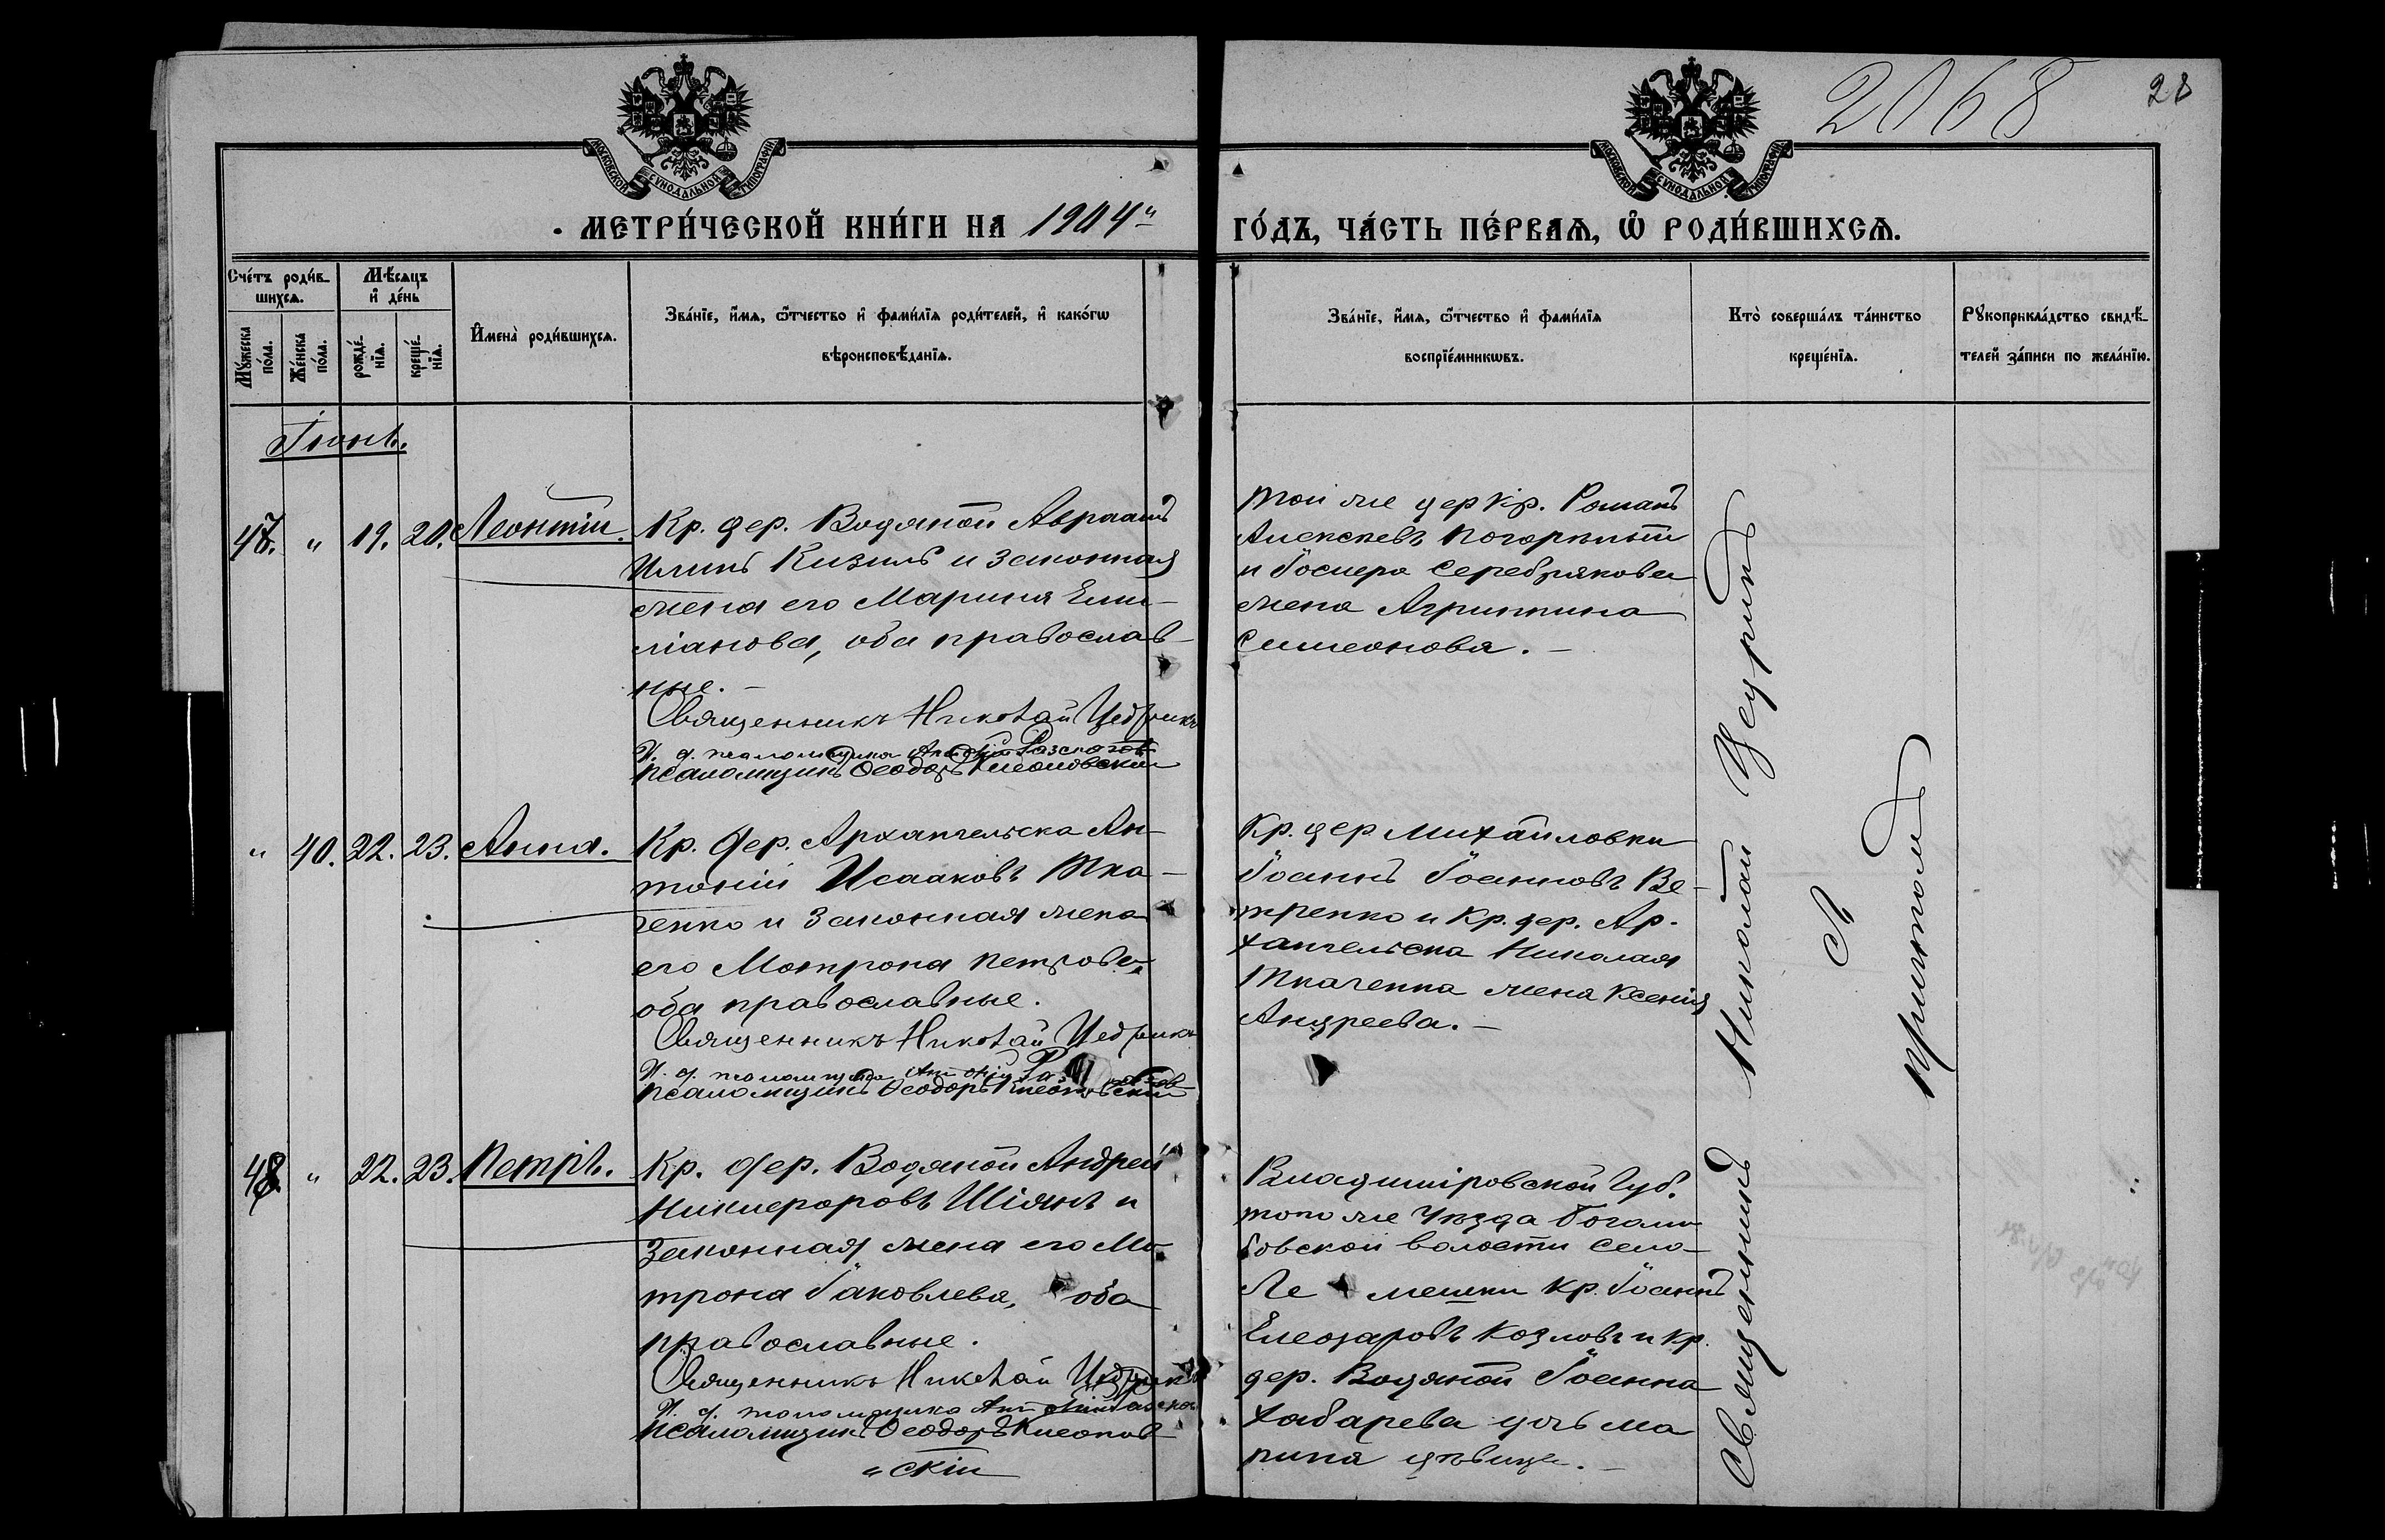 2068
28
МОСКОВСКОЙ СѴНОДАЛЬНОЙ ТИПОГРАФІИ
МОСКОВСКОЙ СѴНОДАЛЬНОЙ ТИПОГРАФІИ
МЕТРИ́ЧЕСКОЙ КНИ́ГИ НА 1904
ГО́ДЪ, ЧА́СТЬ ПЕ́РВАѦ, Ѽ РОДИ́ВШИХСѦ.
Сче́тъ роди́в-
шихсѧ.
Мꙋ́жеска
по́ла.
Же́нска
по́ла.
Мѣ́сѧцъ
и҆ де́нь
рожде́-
нїѧ.
креще́-
нїѧ.
И҆мена̀ роди́вшихсѧ.
Зва́нїе, и҆́мѧ, ѻ҆́тчество и҆ фами́лїѧ роди́телей, и҆ како́гѡ
вѣроисповѣ́данїѧ.
Зва́нїе, и҆́мѧ, ѻ҆́тчество и҆ фами́лїѧ
воспрїе́мникѡвъ.
Кто̀ соверша́лъ та́инство
креще́нїѧ.
Рꙋкоприкла́дство свидѣ́-
телей за́писи по жела́нїю.
Іюнь.
47. " 19. 20. Леонтій.
Кр. дер. Водяной Авраамъ
Илинъ Кизиль и законная
жена его Марина Еми-
ліанова, оба православ-
ные. –
Священникъ Николай Цедрикъ
И. д. псаломщика Антоній
Псаломщикъ Ѳеодоръ Клеоповскій
Той же дер кр. Романъ
Алексѣевъ Погорѣлый
и Іосифа Серебрякова
жена Агриппина
Симеонова. –
" 40. 22. 23. Анна.
Кр. дер. Архангельска Ан-
тоній Исааковъ Тка-
ченко и законная жена
его Матрона Петрова,
оба православные.
Священникъ Николай Цедрикъ
И. д. псаломщика Антоній
Псаломщикъ Ѳеодоръ Клеоповскій
Кр. дер Михайловки
Іоаннъ Іоанновъ Ве-
тренко и кр. дер. Ар-
хангельска Николая
Ткаченка жена Ксенія
Андреева. –
48. " 22. 23. Петръ.
Кр. дер. Водяной Андрей
Никифоровъ Шіянъ и
законная жена его Ма-
трона Іаковлева, оба
православные.
Священникъ Николай Цедрикъ
И. д. псаломщика Антоній
Псаломщикъ Ѳеодоръ Клеопов-
"скій
Владимировской Губ.
того же Уѣзда Боголю-
бовской волости село
Ле мешки кр. Іоаннъ
Елеозаровъ Козловъ и кр.
дер. Водяной Іоанна
Хабарева дочь Ма
рина дѣвица. –
Священникъ Николай Цедрикъ
с
причтомъ